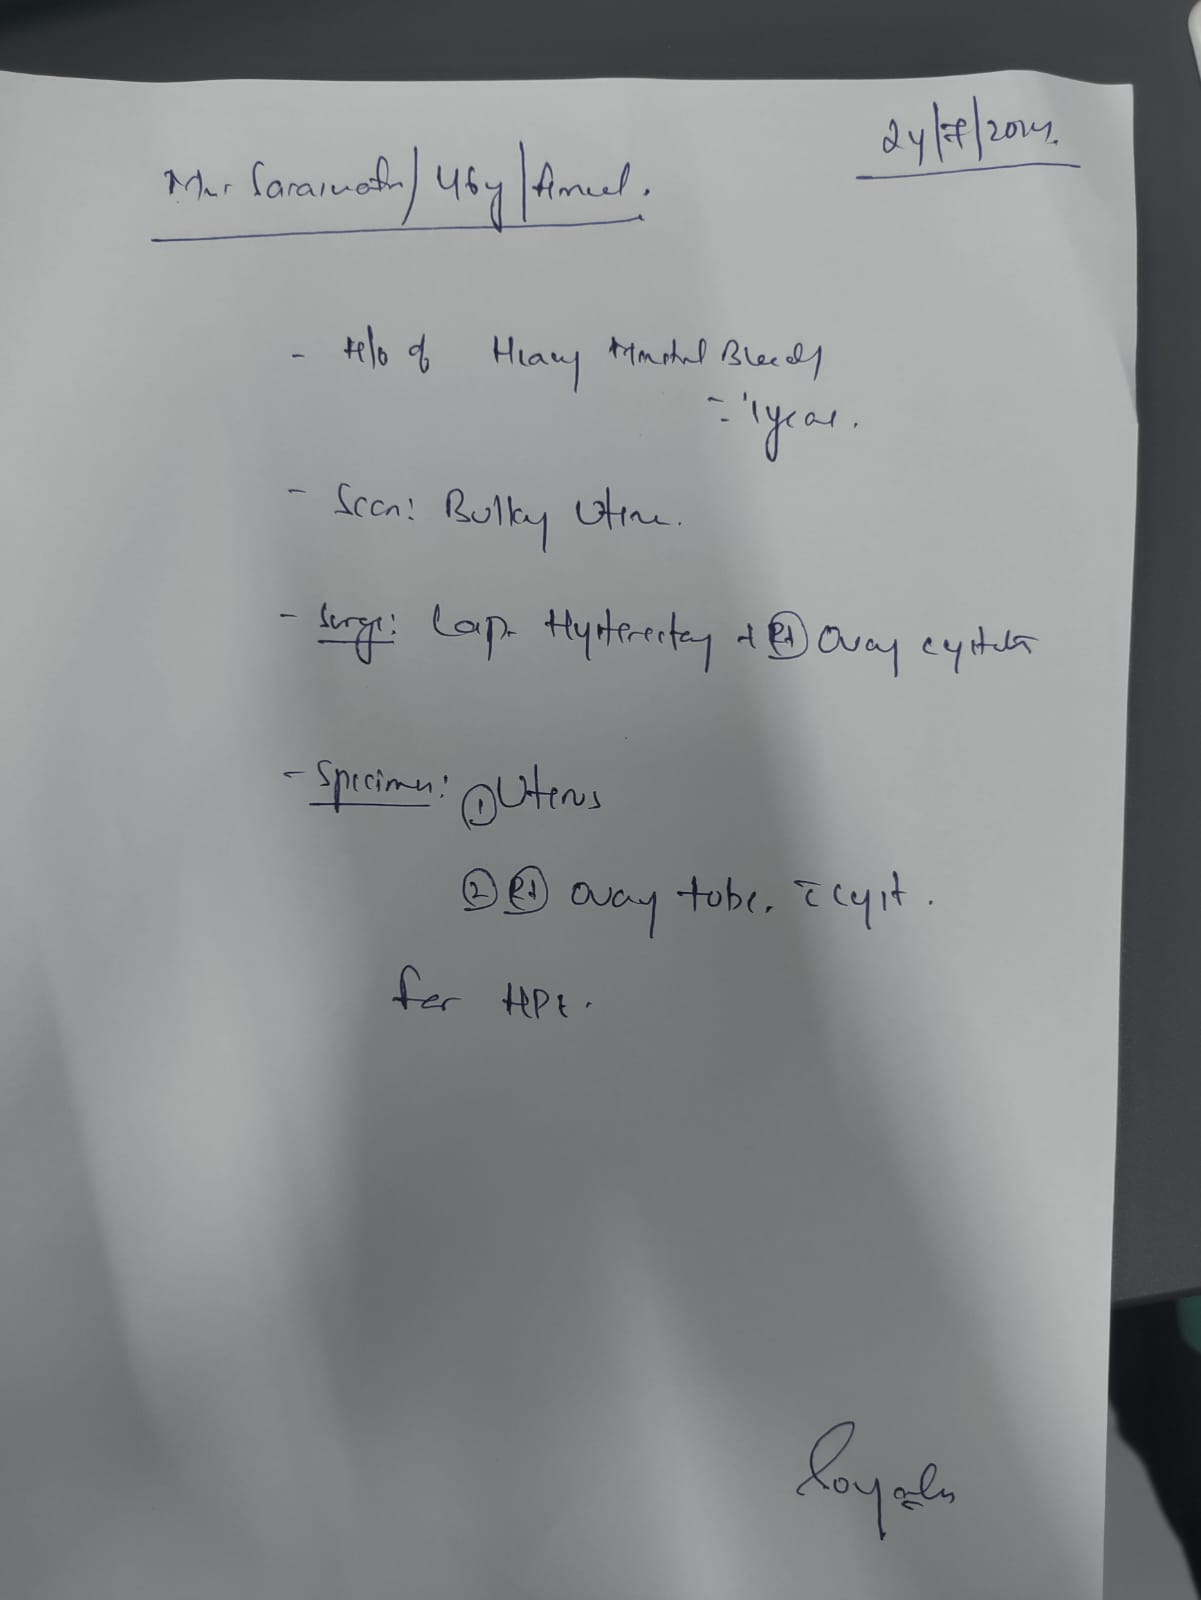 24/7/2024.
Mrs Saraswathi / 46y / Female.
- H/o of Heavy Menstrual Bleeding
1 year.
- Scan: Bulky Uterus.
- Surgery: Lap. Hysterectomy + Rt Ovary cystectomy
- Specimen: ① Uterus
② Rt Ovary tube. c̄ cyst.
for HPE.